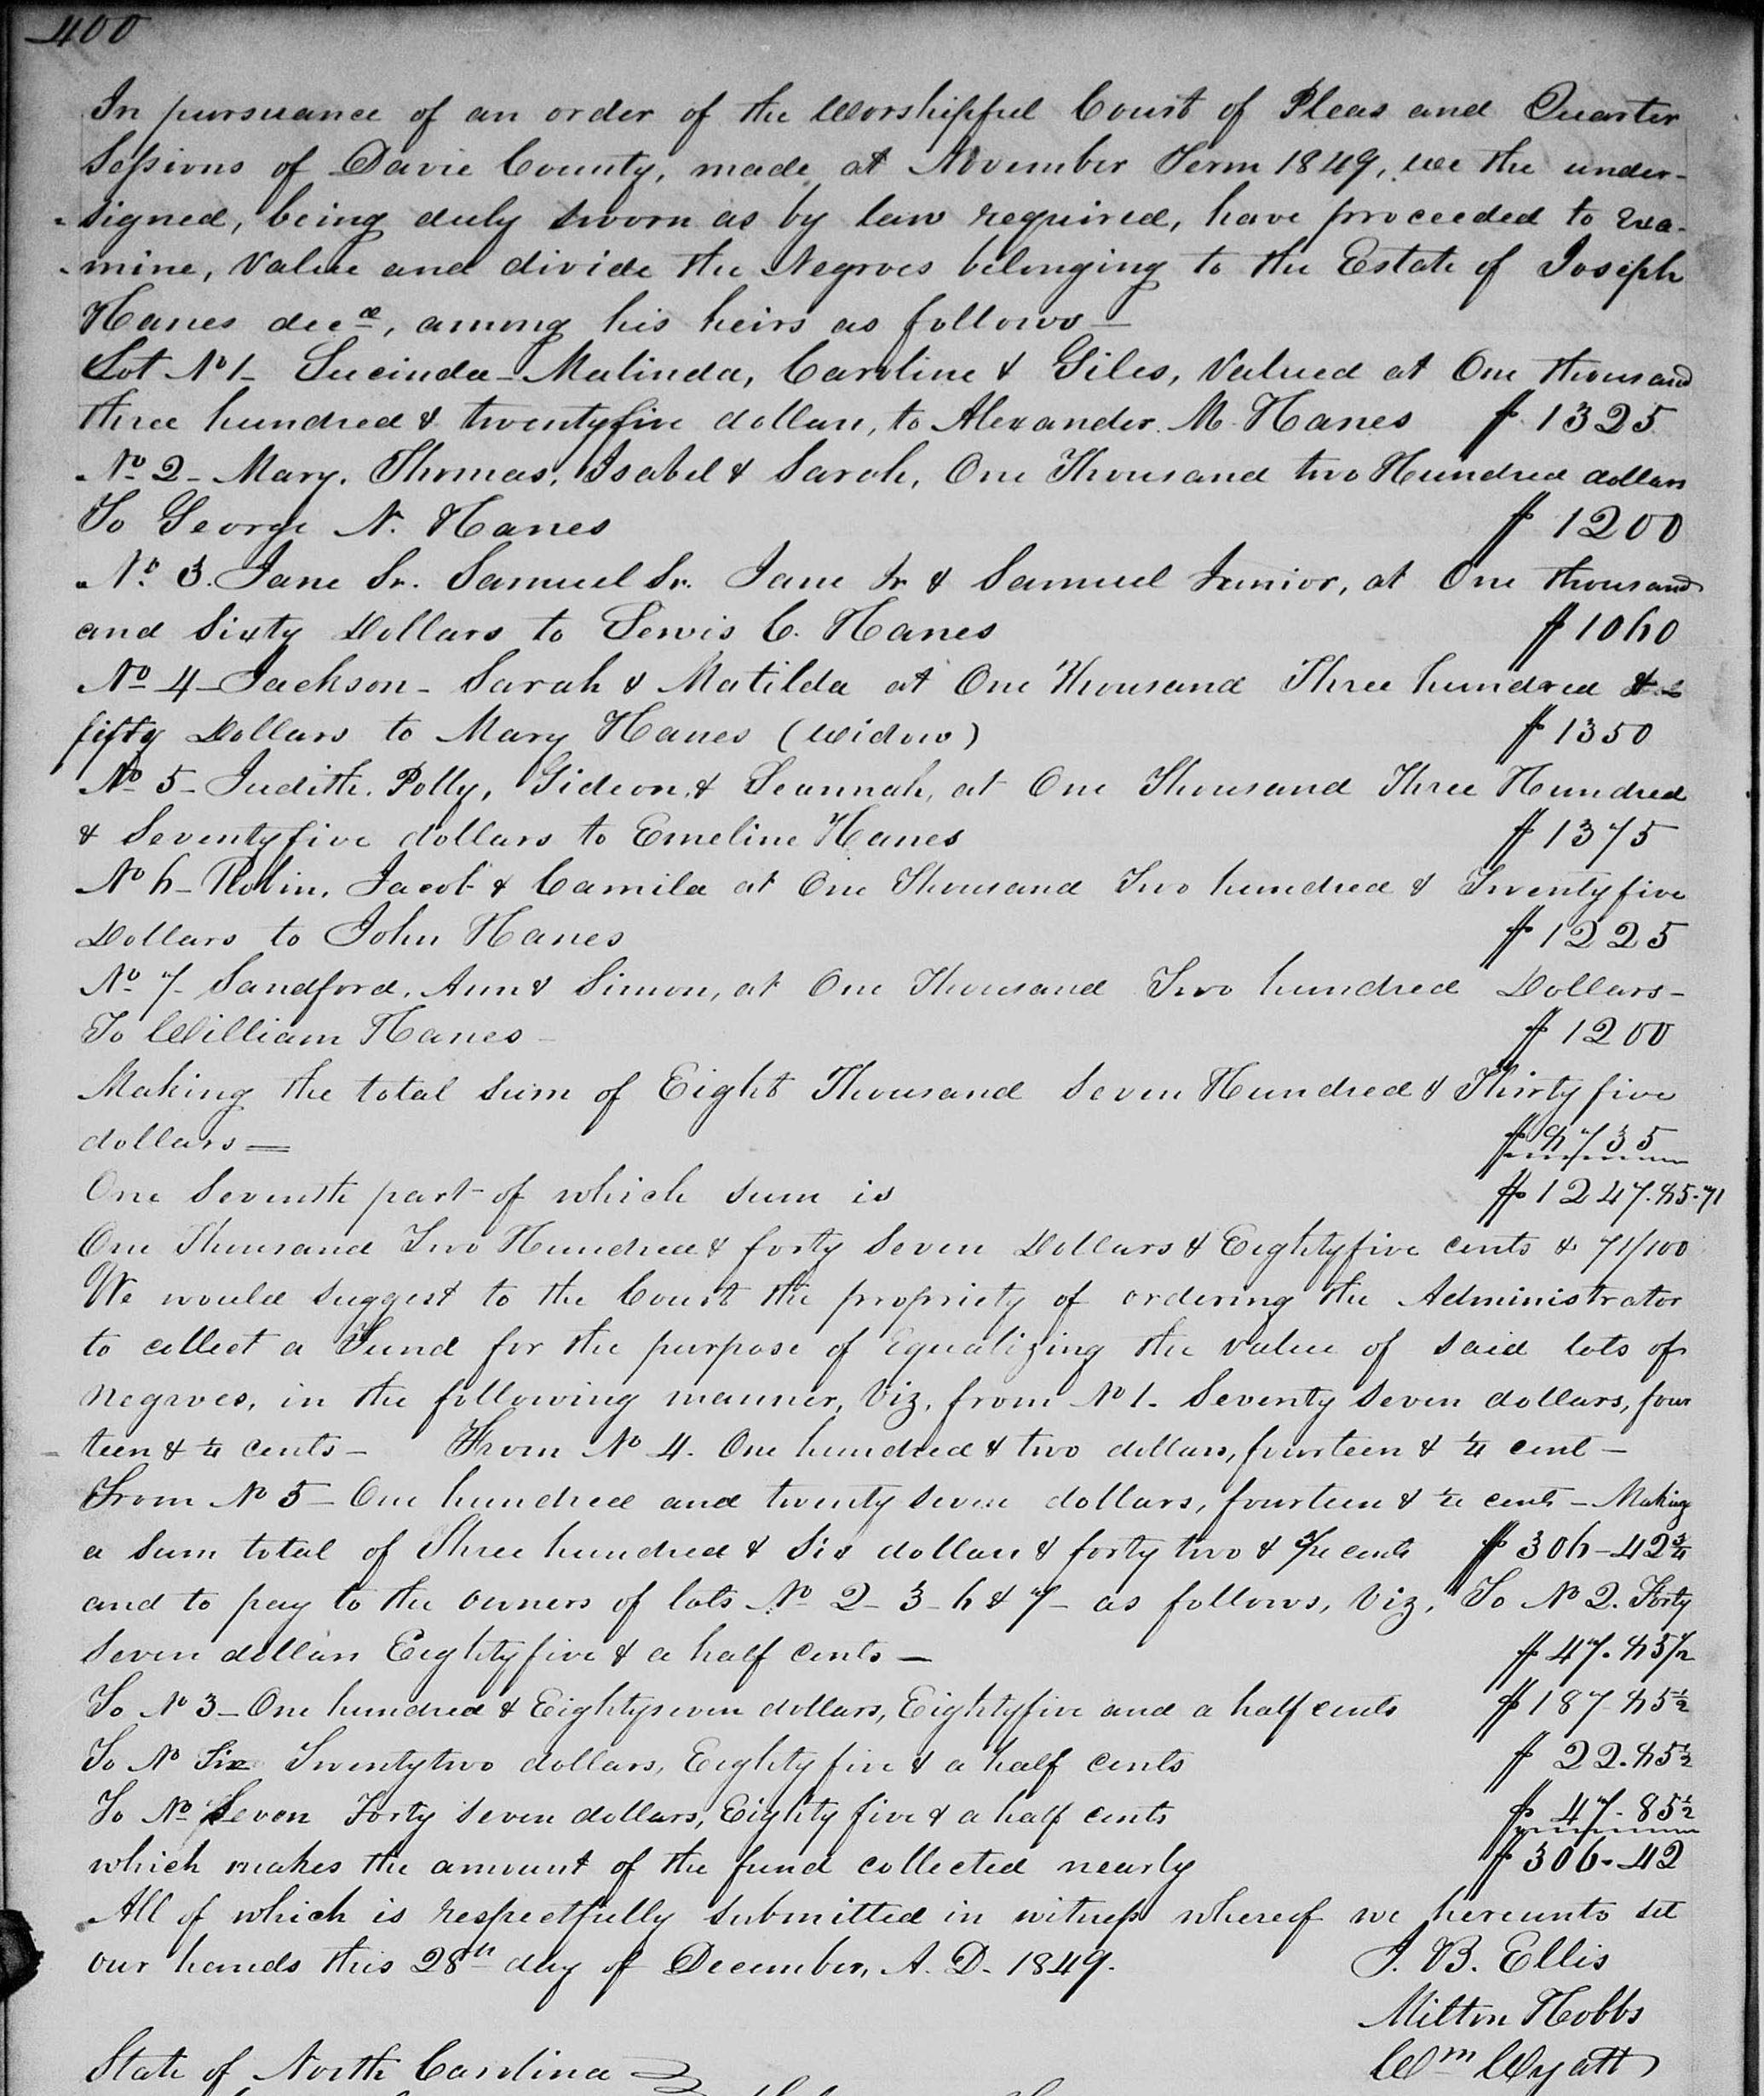 400
In pursuance of an order of the Worshipful Court of Pleas and Quarter
Sessions of Davie County, made at November Term 1849, we the under-
-signed, being duly sworn as by law required, have proceeded to exa-
-mine, Value and divide the Negroes belonging to the Estate of Joseph
Hanes decd, among his heirs as follows —
Lot No 1 - Lucinda - Malinda, Caroline & Giles, Valued at One thousand
three hundred & twentyfive dollars, to Alexander M Hanes $ 1325
No 2 - Mary, Thomas, Isabel & Sarah, One Thousand two Hundred dollars
To George N. Hanes $ 1200
No 3. Jane Sr. Samuel Sr. Jane Jr & Samuel Junior, at One thousand
and Sixty Dollars to Lewis C. Hanes $ 1060
No 4 - Jackson - Sarah & Matilda at One Thousand Three hundred &
fifty Dollars to Mary Hanes (Widow) $ 1350
No 5 - Judith, Polly, Gideon, & Seannah, at One Thousand Three Hundred
& Seventyfive dollars to Emeline Hanes $ 1375
No 6 - Robin, Jacob & Camila at One Thousand Two hundred & Twentyfive
Dollars to John Hanes $ 1225
No 7 - Sandford, Ann & Simon, at One Thousand Two hundred Dollars -
To William Hanes - $ 1200
Making the total sum of Eight Thousand Seven Hundred & Thirty five
dollars = $ 8735
One Seventh part of which sum is $ 1247.85.71
One Thousand Two Hundred & forty Seven Dollars & Eightyfive cents & 71/100
We would suggest to the Court the propriety of ordering the Administrator
to collect a Fund for the purpose of Equalizing the value of said lots of
negroes, in the following manner, Viz, from No 1 - Seventy Seven dollars, four
-teen & ¼ cents - From No 4. One hundred & two dollars, fourteen & ¼ cent -
From No 5 - One hundred and twenty seven dollars, fourteen & ¼ cents - Making
a Sum total of Three hundred & Six dollars & forty two & ¾ cents $ 306-42¾
and to pay to the owners of lots No 2 - 3 - 6 & 7 - as follows, Viz, To No 2. Forty
Seven dollars Eightyfive & a half cents — $ 47.85½
To No 3 - One hundred & Eightyseven dollars, Eightyfive and a half cents $ 187-85½
To No Six Twentytwo dollars, Eighty five & a half cents $ 22.85½
To No Seven Forty Seven dollars, Eighty five & a half cents $ 47-85½
which makes the amount of the fund collected nearly $ 306-42
All of which is respectfully submitted in witness whereof we hereunto set
our hands this 28th day of December, A. D. 1849. J. B. Ellis
Milton Hobbs
Wm Wyatt
State of North Carolina